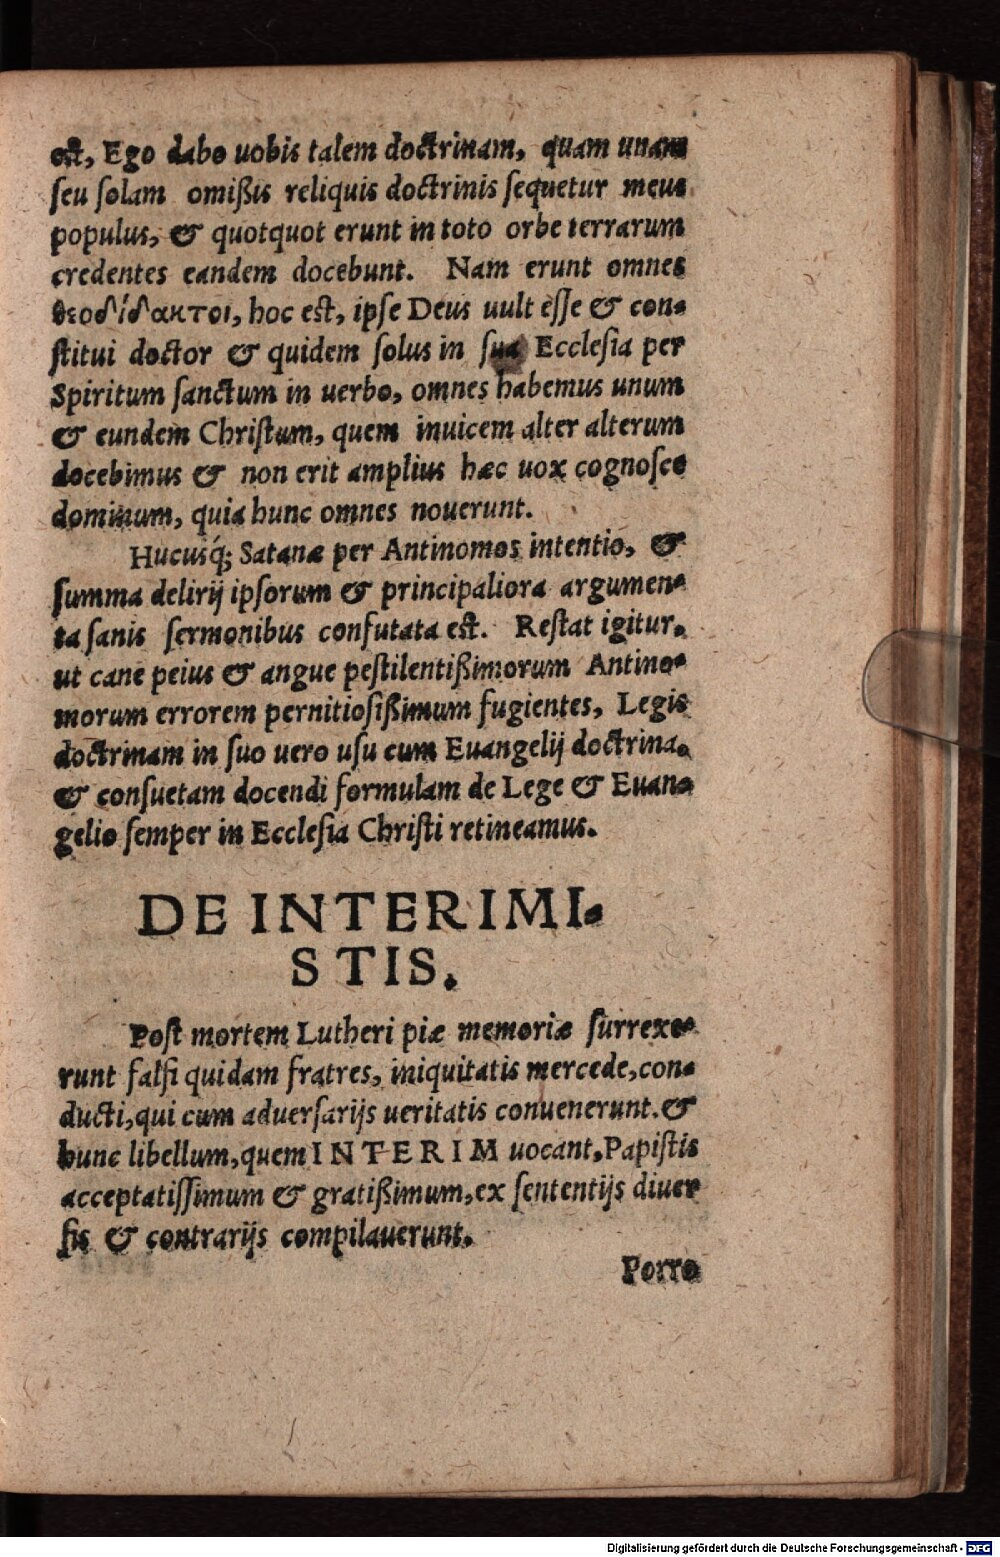 est, Ego dabo uobis talem doctrinam, quam unam
seu solam omißis reliquis doctrinis sequetur meus
populus, & quotquot erunt in toto orbe terrarum
credentes eandem docebunt. Nam erunt omnes
θεοδίδακτοι, hoc est, ipse Deus uult esse & con-
stitui doctor & quidem solus in sua Ecclesia per
Spiritum sanctum in uerbo, omnes habemus unum
& eundem Christum, quem inuicem alter alterum
docebimus & non erit amplius hæc uox cognosce
dominum, quia hunc omnes nouerunt.
Hucusq́; Satanæ per Antinomos intentio, &
summa delirij ipsorum & principaliora argumen-
ta sanis sermonibus confutata est. Restat igitur,
ut cane peius & angue pestilentißimorum Antino-
morum errorem pernitiosißimum fugientes, Legis
doctrinam in suo uero usu cum Euangelij doctrina,
& consuetam docendi formulam de Lege & Euan-
gelio semper in Ecclesia Christi retineamus.
DE INTERIMI-
STIS.
Post mortem Lutheri piæ memoriæ surrexe-
runt falsi quidam fratres, iniquitatis mercede, con-
ducti, qui cum aduersarijs ueritatis conuenerunt. &
hunc libellum, quem INTERIM uocant, Papistis
acceptatissimum & gratißimum, ex sententijs diuer
sis & contrarijs compilauerunt.
Porro
Digitalisierung gefördert durch die Deutsche Forschungsgemeinschaft - DFG